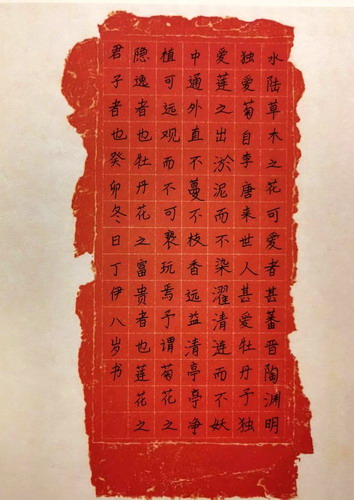 水陆草木之花可爱者甚蕃晋陶渊明
独爱菊自李唐来世人甚爱牡丹予独
爱莲之出淤泥而不染濯清涟而不妖
中通外直不蔓不枝香远益清亭亭净
植可远观而不可亵玩焉予谓菊花之
隐逸者也牡丹花之富贵者也莲花之
君子者也癸卯冬日丁伊八岁书